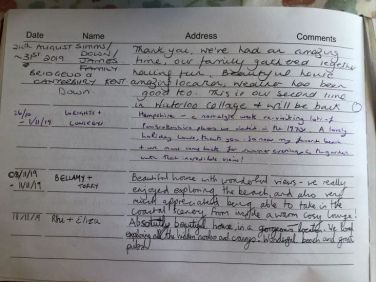 Date Name Address Comments
24th August Simms/ Thank you, we've had an amazing
- 31st 2019 Down/ time, our family gathered together
James
Family having fun. Beautiful house
Bridgend amazing location, weather has been
Canterbury Kent good too. This is our second time
Down. in Waterloo Cottage + will be back
Hampshire - a nostalgic week re-visiting lots of
- 1/11/19 Pembrokeshire places we visited in the 1970s. A lovely
holiday home thank you. So near my favourite beach
+ we must come back for summer evenings
with that incredible view!
08/11/19 Bellamy + Beautiful home with wonderful views - we really
- 11/11/19 Torry enjoyed exploring the beach, and also very
much appreciated being able to take in the
coastal scenery from inside a warm cosy lounge!
18/11/19 Rhi + Eliza Absolutely beautiful house in a gorgeous location. We loved
exploring all the hidden nooks and crannys. Wonderful beach and great
pubs!